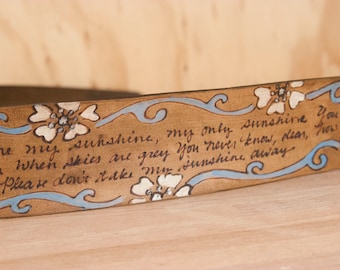 my sunshine, my only sunshine You
When skies are grey You never know, dear, how
Please don't take my sunshine away